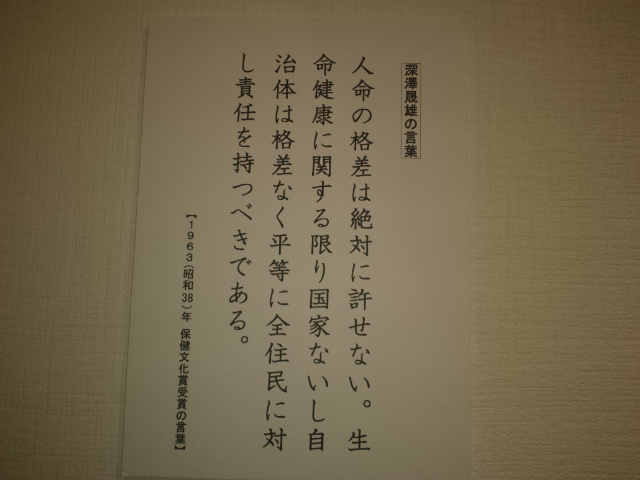 深澤晟雄の言葉
人命の格差は絶対に許せない。生
命健康に関する限り国家ないし自
治体は格差なく平等に全住民に対
し責任を持つべきである。
【1963(昭和38)年 保健文化賞受賞の言葉】